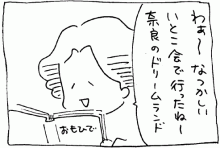 わぁ〜なつかしい
いとこ会で行ったねー
奈良のドリームランド
おもひで